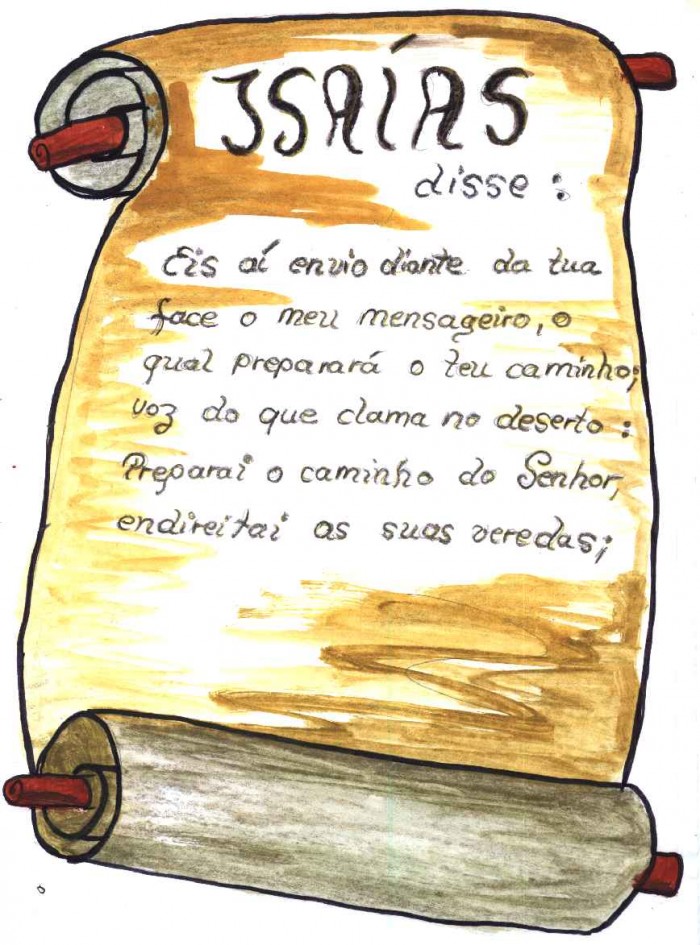 ISAÍAS
disse:
Eis aí envio diante da tua
face o meu mensageiro, o
qual preparará o teu caminho;
voz do que clama no deserto:
Preparai o caminho do Senhor,
endireitai as suas veredas;